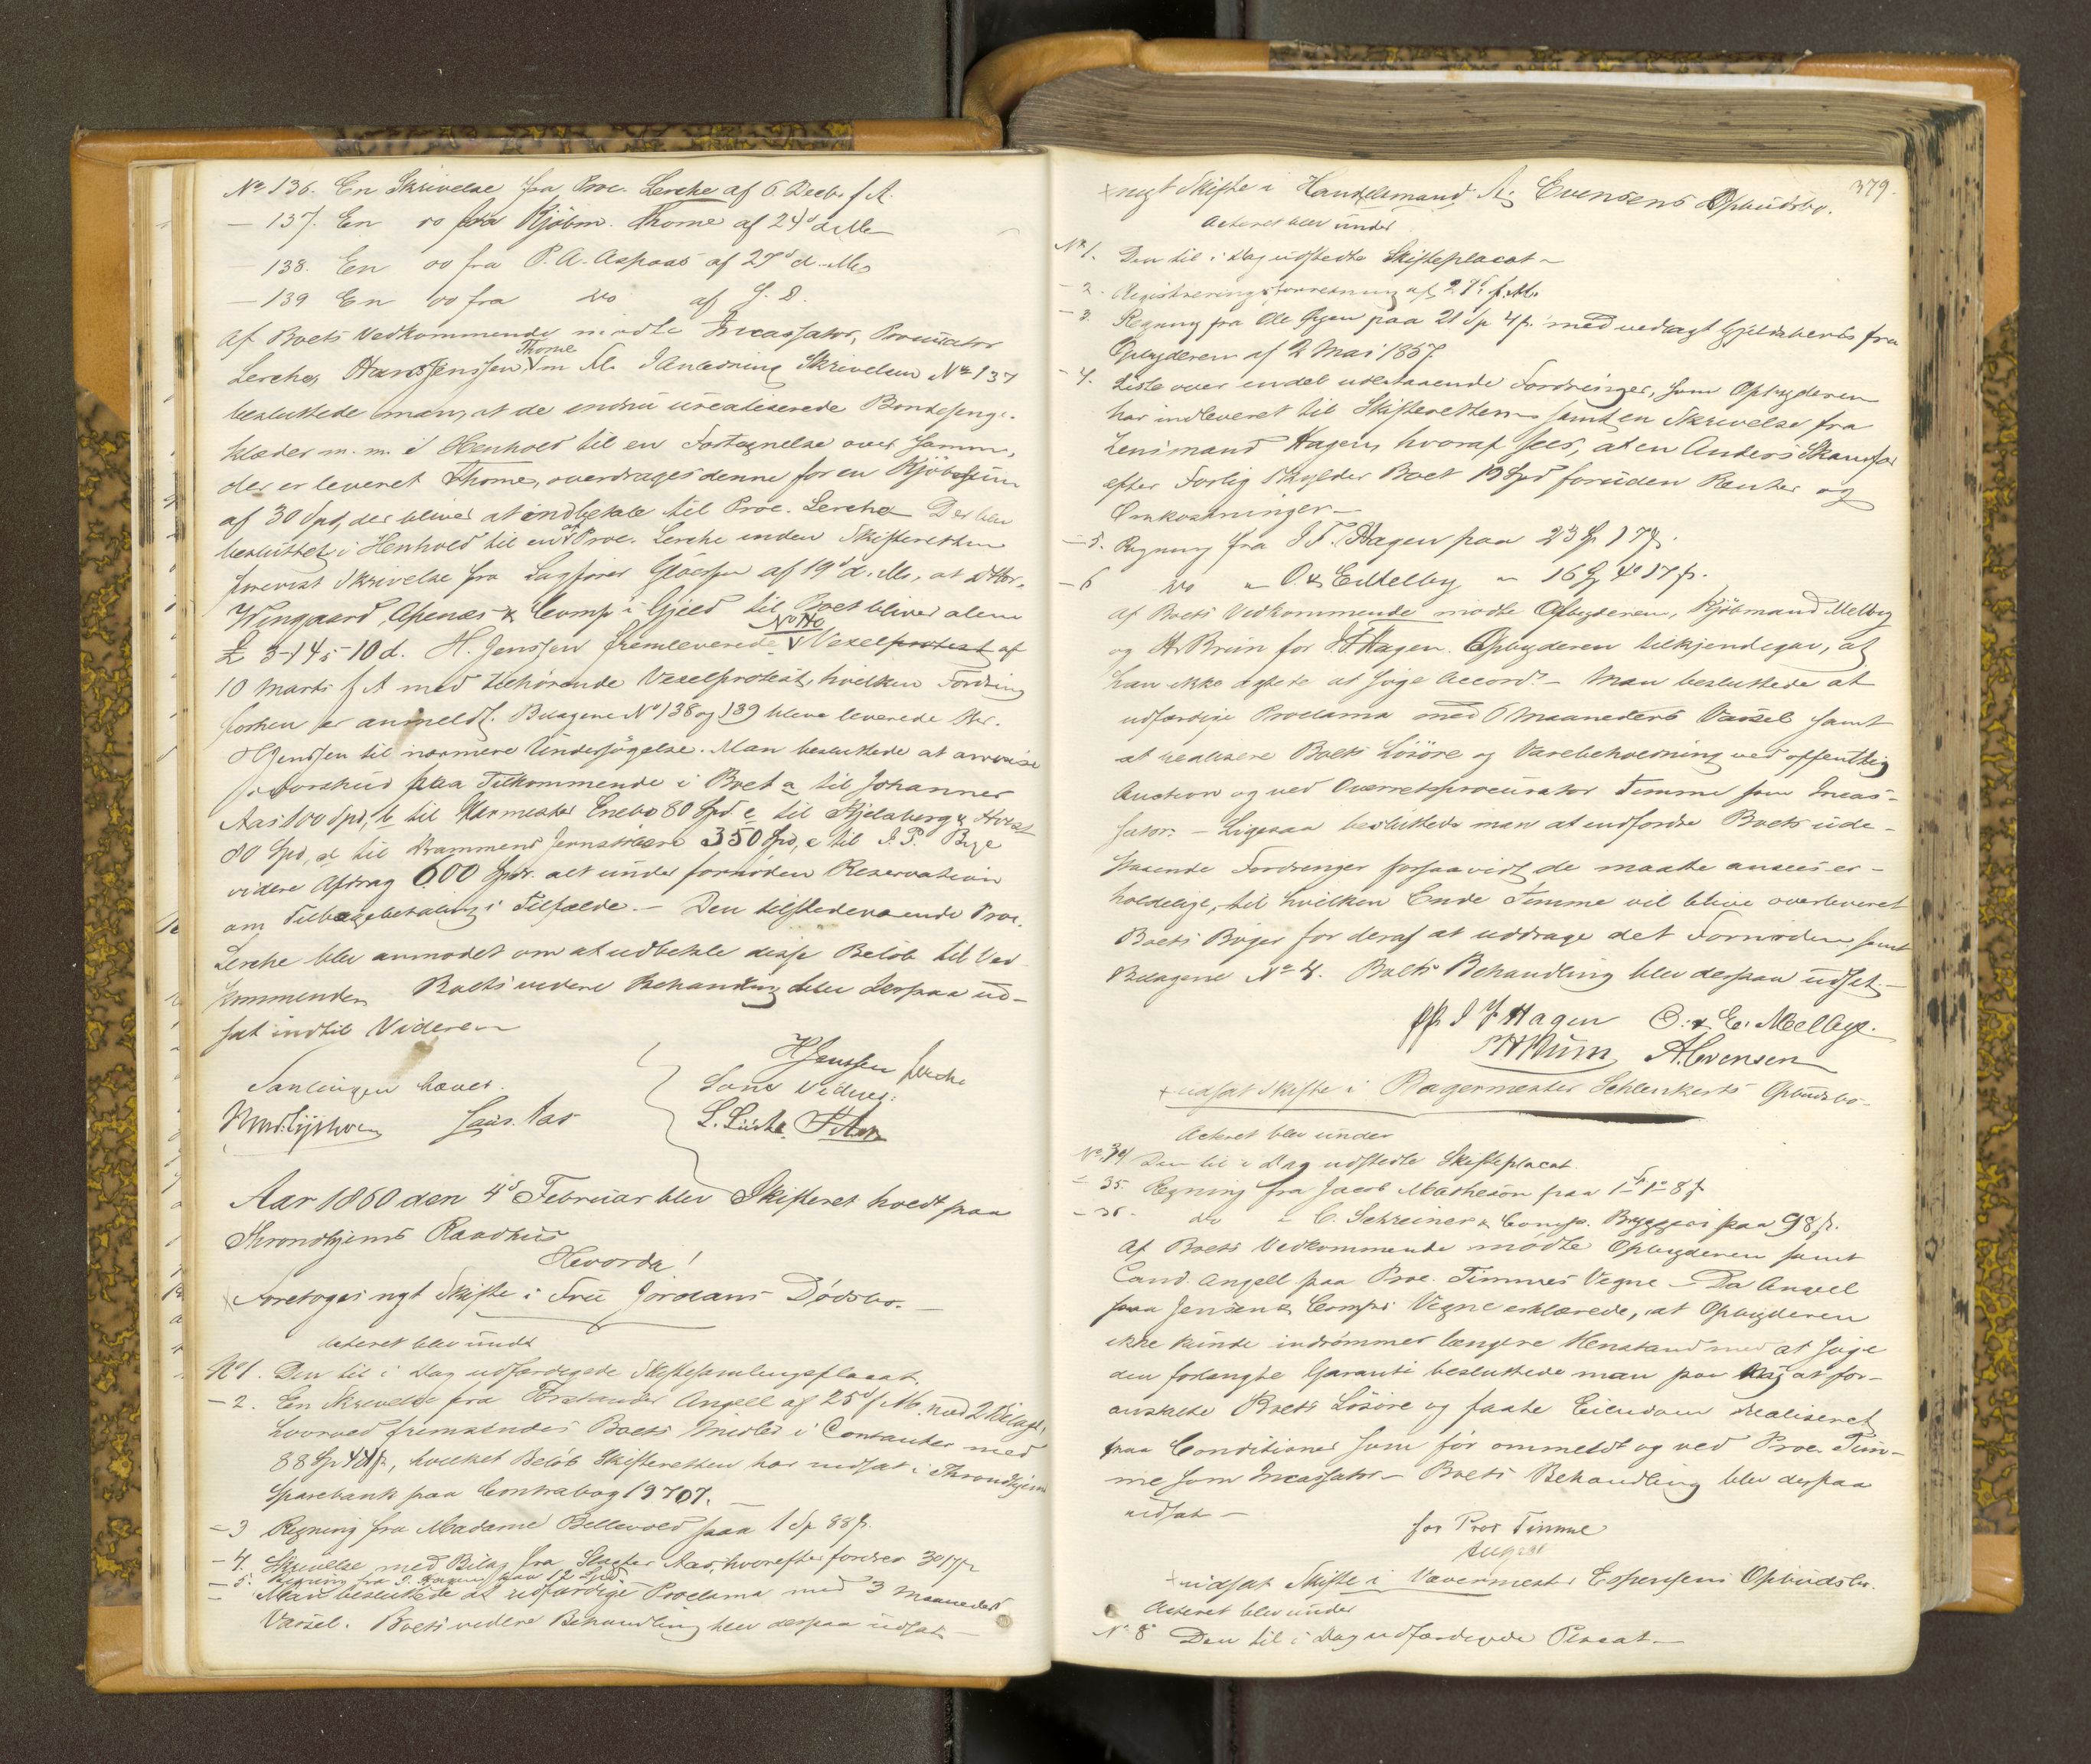 No 136. En Skrivelse fra Proc. Lerche af 6 Decbr f. A.
— 137. En do fra Kjöbm. Thome af 24d d. M.
138. En do fra P. A. Aspaas af 27d d. Ms
— 139 En do fra do af J. D.
Af Boets Vedkommende mødte Incassator, Procurator
Lerche, Hans Jenssen, Thome m. Fl. I Anledning Skrivelsen No 137
besluttede man, at de endnu urealiserede Bondesenge-
klæder m. m. i Henhold til en Fortegnelse over samme,
der er leveret Thome, overdrages denne for en Kjöbesum
af 30 Spd, der bliver at indbetale til Proc. Lerche. Der blev
besluttet i Henhold til en af Proc. Lerche inden Skifteretten
forevist Skrivelse fra Sagfører Gløersen af 19d d. Ms, at DHrr.
Wingaard, Openæs & Comp i Gjeld til Boet bliver alene
£ 3-14s-10d. H. Jenssen fremleverede No 140 Vexelprotest af
10 Marts f A med tilhørende Vexelprotest, hvilken Fordring
forhen er anmeldt. Bilagene No 138 og 139 bleve leverede Hr.
H Jenssen til nærmere Undersøgelse. Man besluttede at anvise
i Forskud paa Tilkommende i Boet a til Johannes
Aas 100 Spd, b til Murmester Enebo 80 Spd c til Kjelsberg & Horst
80 Spd, d til Drammens Jernstøberi 350 Spd, e til I. P. Bye
videre Afdrag 600 Spdr. alt under fornöden Reservation
om Tilbagebetaling i Tilfælde. — Den tilstedeværende Proc.
Lerche blev anmodet om at udbetale disse Beløb til Ved-
kommende. Boets videre Behandling blev derpaa ud-
sat indtil Videre.
Samlingen hævet.
H Jenssen Lerche
Som Vidner:
Aar 1860 den 4d Februar blev Skifteret holdt paa
Throndhjems Raadhus
Hvorda!
Foretoges nyt Skifte i Fru Jordans Dødsbo. —
Acteret blev under
No 1. Den til i Dag udfærdigede Skiftesamlingsplacat.
— 2. En Skrivelse fra Forstander Angell af 25d f. M. med 2 Bilage,
hvorved fremsendes Boets Midler i Contanter med
88 Sp 44 s, hvilket Beløb Skifteretten har indsat i Throndhjems
Sparebank paa Contrabog 19707. —
— 3 Regning fra Madame Bellevold paa 1 Sp 88 s.
— 4. Skrivelse med Bilag fra Slagter Aas, hvorefter fordres
— 5. Regning fra paa 12 Spd.
— Man besluttede at udfærdige Proclama med 3 Maaneders
Varsel. Boets videre Behandling blev derpaa udsat —
379.
nyt Skifte i Handelsmand A. Evensens Opbudsbo.
Acteret blev under
No 1. Den til i Dag udstedte Skifteplacat —
— 2. Registreringsforretning af 27d f. M.
— 3. Regning fra Ole paa 21 Sp 4 s. med vedlagt Gjeldsbevis fra
Opbyderen af 2 Mai 1857.
— 4. Liste over endel udestaaende Fordringer, som Opbyderen
har indleveret til Skifteretten, samt en Skrivelse fra
Lensmand Hagen, hvoraf sees, at en Anders
efter Forlig skylder Boet 19 Spd foruden Renter og
Omkostninger —
— 5. Regning fra I F. Hagen paa 23 Sp 17 s.
— 6 do — O & E Melby — 16 Sp 4o 17 s.
Af Boets Vedkommende mødte Opbyderen, Kjöbmand Melby
og Hr Bruun for I. F. Hagen. Opbyderen tilkjendegav, at
han ikke agtede at søge Accord. — Man besluttede at
udfærdige Proclama med 6 Maaneders Varsel samt
at realisere Boets Lösöre og Varebeholdning ved offentlig
Auction og ved Overretsprocurator Timme som Incas-
sator. — Ligesaa besluttede man at indfordre Boets ude-
staaende Fordringer forsaavidt de maatte ansees er-
holdelige, til hvilken Ende Timme vil blive overleveret
Boets Bøger for deraf at uddrage det Fornødne samt
Bilagene No 4. Boets Behandling blev derpaa udsat. —
pp. I F Hagen O. & E. Melbye.
A. Evensen
udsat Skifte i Bagermester Schlenkerts Opbudsbo —
Acteret blev under
No 34 Den til i Dag udstedte Skifteplacat.
— 35. Regning fra Jacob Matheson paa 1 Sp 1o 8 s
— 36. do — C. Schreiner & Comp. Byggeri paa 98 s.
Af Boets Vedkommende mødte Opbyderen samt
Cand. Angell paa Proc. Timmes Vegne. — Da Angell
paa Jensen & Comps Vegne erklærede, at Opbyderen
ikke kunde indrømmes længere Henstand med at søge
den forlangte Garanti besluttede man paa Ny at for-
anstalte Boets Lösöre og faste Eiendom realiseret
paa Conditioner som før ommeldt og ved Proc. Tim-
me som Incassator — Boets Behandling blev derpaa
udsat —
for Proc Timme
Angell
udsat Skifte i Vævermester Espensens Opbudsbo.
Acteret blev under
No 8 Den til i Dag udfærdigede Placat. —